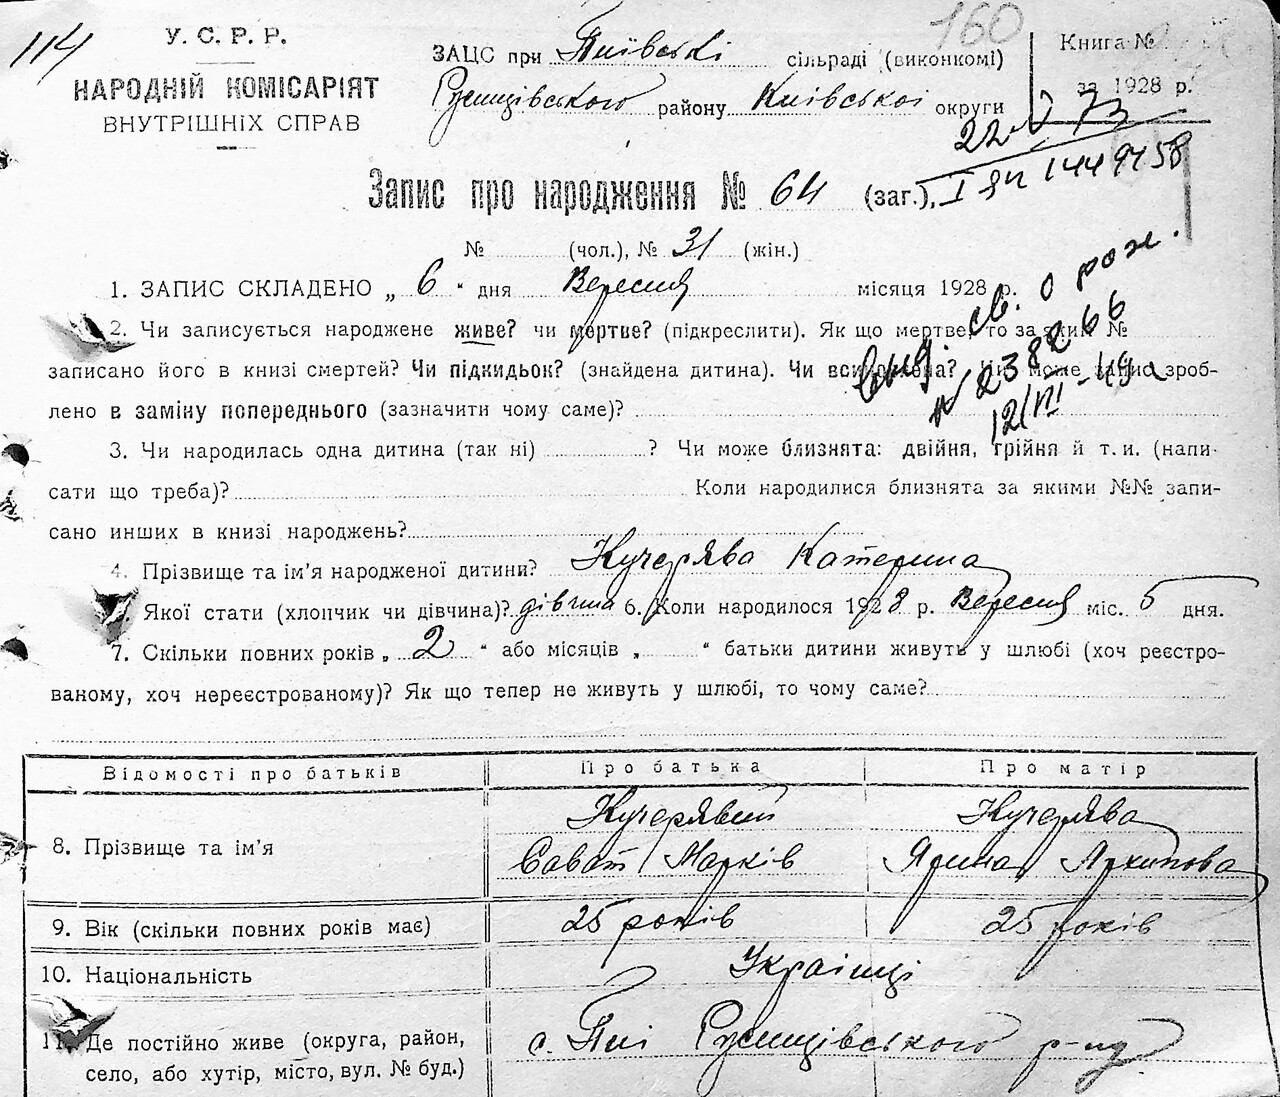 114
160
У. С. Р. Р.
НАРОДНІЙ КОМІСАРІЯТ
ВНУТРІШНІХ СПРАВ
ЗАЦС при Пиївські сільраді (виконкомі)
Ружищівського району Київської округи
Книга №
за 1928 р.
22
273
I ЯИ 1449458
Запис про народження № 64 (заг.),
№ (чол.), № 31 (жін.)
1. ЗАПИС СКЛАДЕНО „ 6 “ дня Вересня місяця 1928 р.
2. Чи записується народжене живе? чи мертве? (підкреслити). Як що мертве, то за яким №
записано його в книзі смертей? Чи підкидьок? (знайдена дитина). Чи може запис зроб-
лено в заміну попереднього (зазначити чому саме)?
выд. св. о рож.
№ 238266
12/III-49
3. Чи народилась одна дитина (так ні) ? Чи може близнята: двійня, трійня й т. и. (напи-
сати що треба)? Коли народилися близнята за якими №№ запи-
сано инших в книзі народжень?
4. Прізвище та ім’я народженої дитини? Кучерява Катерина
Якої стати (хлопчик чи дівчина)? дівчина 6. Коли народилося 1928 р. Вересня міс. 5 дня.
7. Скільки повних років „ 2 “ або місяців „ “ батьки дитини живуть у шлюбі (хоч реєстро-
ваному, хоч нереєстрованому)? Як що тепер не живуть у шлюбі, то чому саме?
Відомості про батьків Про батька Про матір
Кучерявий Кучерява
8. Прізвище та ім’я Сават Марків Ярина Архипова
9. Вік (скільки повних років має) 25 років 25 років
10. Національність Українці
11. Де постійно живе (округа, район, с. Пиї Ружищівського р-ну
село, або хутір, місто, вул. № буд.)